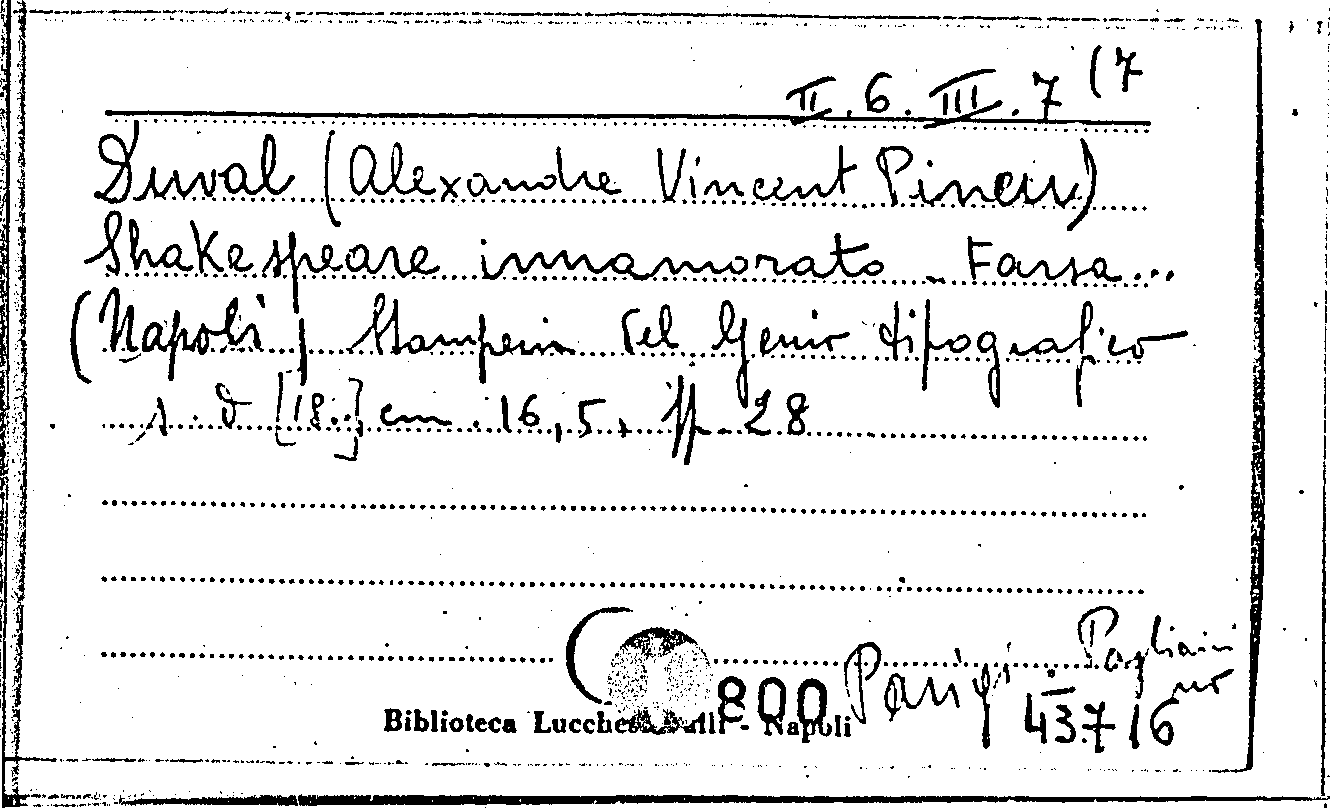 II. 6. III. 7 (7
Duval (Alexandre Vincent Pineu)
Shakespeare innamorato - Farsa...
(Napoli, Stamperia del Genio tipografico
s. d [18..] cm. 16,5, pp. 28
800
Biblioteca Lucchesi Palli - Napoli
43.7 16